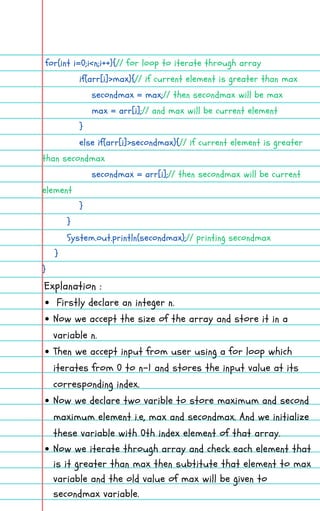 for(int i=0;i<n;i++){// for loop to iterate through array
if(arr[i]>max){// if current element is greater than max
secondmax = max;// then secondmax will be max
max = arr[i];// and max will be current element
}
else if(arr[i]>secondmax){// if current element is greater
than secondmax
secondmax = arr[i];// then secondmax will be current
element
}
}
System.out.println(secondmax);// printing secondmax
}
}
Explanation :
• Firstly declare an integer n.
• Now we accept the size of the array and store it in a
variable n.
• Then we accept input from user using a for loop which
iterates from 0 to n-1 and stores the input value at its
corresponding index.
• Now we declare two varible to store maximum and second
maximum element i.e, max and secondmax. And we initialize
these variable with 0th index element of that array.
• Now we iterate through array and check each element that
is it greater than max then subtitute that element to max
variable and the old value of max will be given to
secondmax variable.